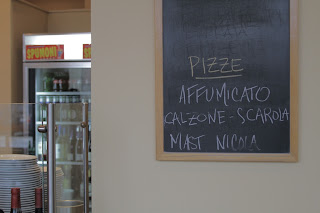 SPUMONI
PIZZE
AFFUMICATO
CALZONE - SCAROLA
MAST NICOLA